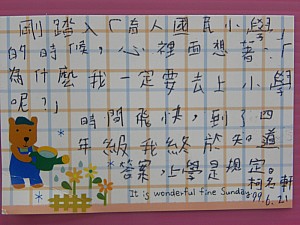 剛踏入「育人國民小學」
的時候，心裡面想著：「
為什麼我一定要去上小學
呢？」
時間飛快，到了四
年級我終於知道
答案，上學是規定。
It is wonderful fine Sunday
柯名軒
99.6.21